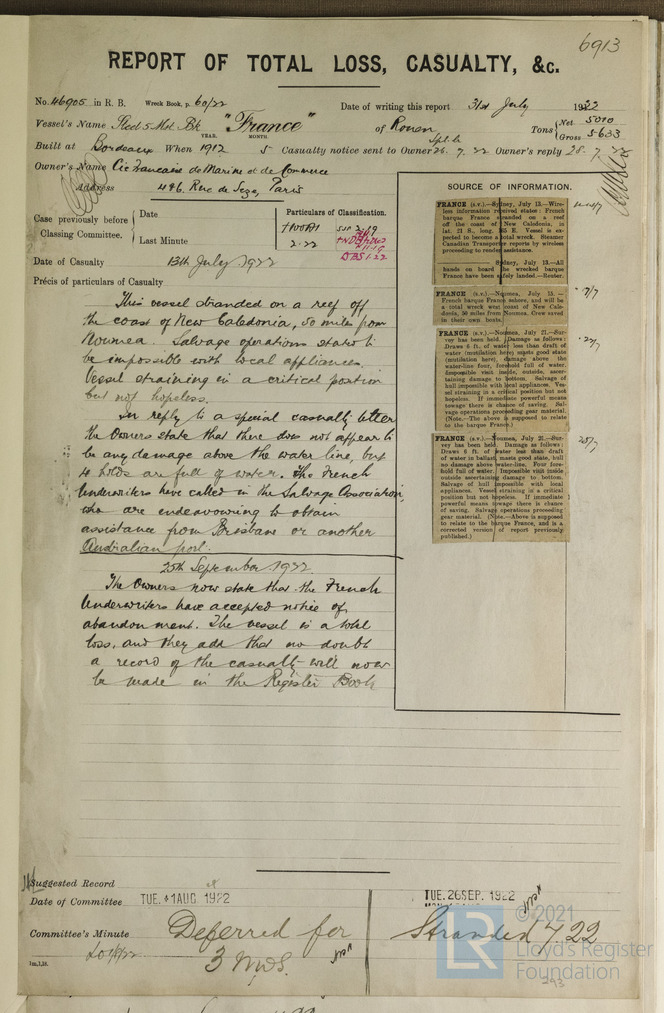 6913
REPORT OF TOTAL LOSS, CASUALTY, &c.
No. 46905 in R. B. Wreck Book, p. 60/22 Date of writing this report 31st July 1922
Vessel's Name Steel 5 Mst Bk "France" of Rouen Tons Net 5010 Gross 5633
YEAR. MONTH
Built at Bordeaux When 1912 5 Casualty notice sent to Owner 26. 7. 22 Owner's reply 28. 7. 22
Owner's Name Cie Francaise de Marine et de Commerce
Address 4 & 6, Rue de Seze, Paris
Case previously before Classing Committee.
Date
Last Minute
Particulars of Classification.
+100A1
2.22
Date of Casualty 13th July 1922
Précis of particulars of Casualty
This vessel stranded on a reef off
the coast of New Caledonia, 50 miles from
Noumea. Salvage operations stated to
be impossible with local appliances.
Vessel straining in a critical position
but not hopeless.
In reply to a special casualty letter
the Owners state that there does not appear to
be any damage above the water line, but
4 holds are full of water. The French
Underwriters have called in the Salvage Association,
who are endeavouring to obtain
assistance from Brisbane or another
Australian port.
25th September 1922
The Owners now state that the French
Underwriters have accepted notice of
abandonment. The vessel is a total
loss, and they add that no doubt
a record of the casualty will now
be made in the Register Book
SOURCE OF INFORMATION.
FRANCE (s.v.).—Sydney, July 13.—Wireless
information received states: French
barque France stranded on a reef
off the coast of New Caledonia, in
lat. 21 S., long. 165 E. Vessel is expected
to become a total wreck. Steamer
Canadian Transporter reports by wireless
proceeding to render assistance.
Sydney, July 13.—All
hands on board the wrecked barque
France have been safely landed.—Reuter.
FRANCE (s.v.).—Noumea, July 15.—
French barque France ashore, and will be
a total wreck west coast of New Caledonia,
50 miles from Noumea. Crew saved
in their own boats.
FRANCE (s.v.).—Noumea, July 21.—Survey
has been held. Damage as follows:
Draws 6 ft. of water less than draft of
water (mutilation here) meets good state
(mutilation here), damage above the
water-line four, forehold full of water.
Impossible visit inside, outside, ascertaining
damage to bottom. Salvage of
hull impossible with local appliances. Vessel
straining in a critical position but not
hopeless. If immediate powerful means
towage there is chance of saving. Salvage
operations proceeding gear material.
(Note.—The above is supposed to relate
to the barque France.)
FRANCE (s.v.).—Noumea, July 21.—Survey
has been held. Damage as follows:
Draws 6 ft. of water less than draft
of water in ballast, meets good state, hull
no damage above water-line. Four forehold
full of water. Impossible visit inside
outside ascertaining damage to bottom.
Salvage of hull impossible with local
appliances. Vessel straining in a critical
position but not hopeless. If immediate
powerful means towage there is chance
of saving. Salvage operations proceeding
gear material. (Note.—Above is supposed
to relate to the barque France, and is a
corrected version of report previously
published.)
Suggested Record
Date of Committee TUE. 1 AUG. 1922 TUE. 26 SEP. 1922
Committee's Minute Deferred for
3 mos.
Stranded 7.22
© 2021
LR
Lloyd's Register
Foundation
293